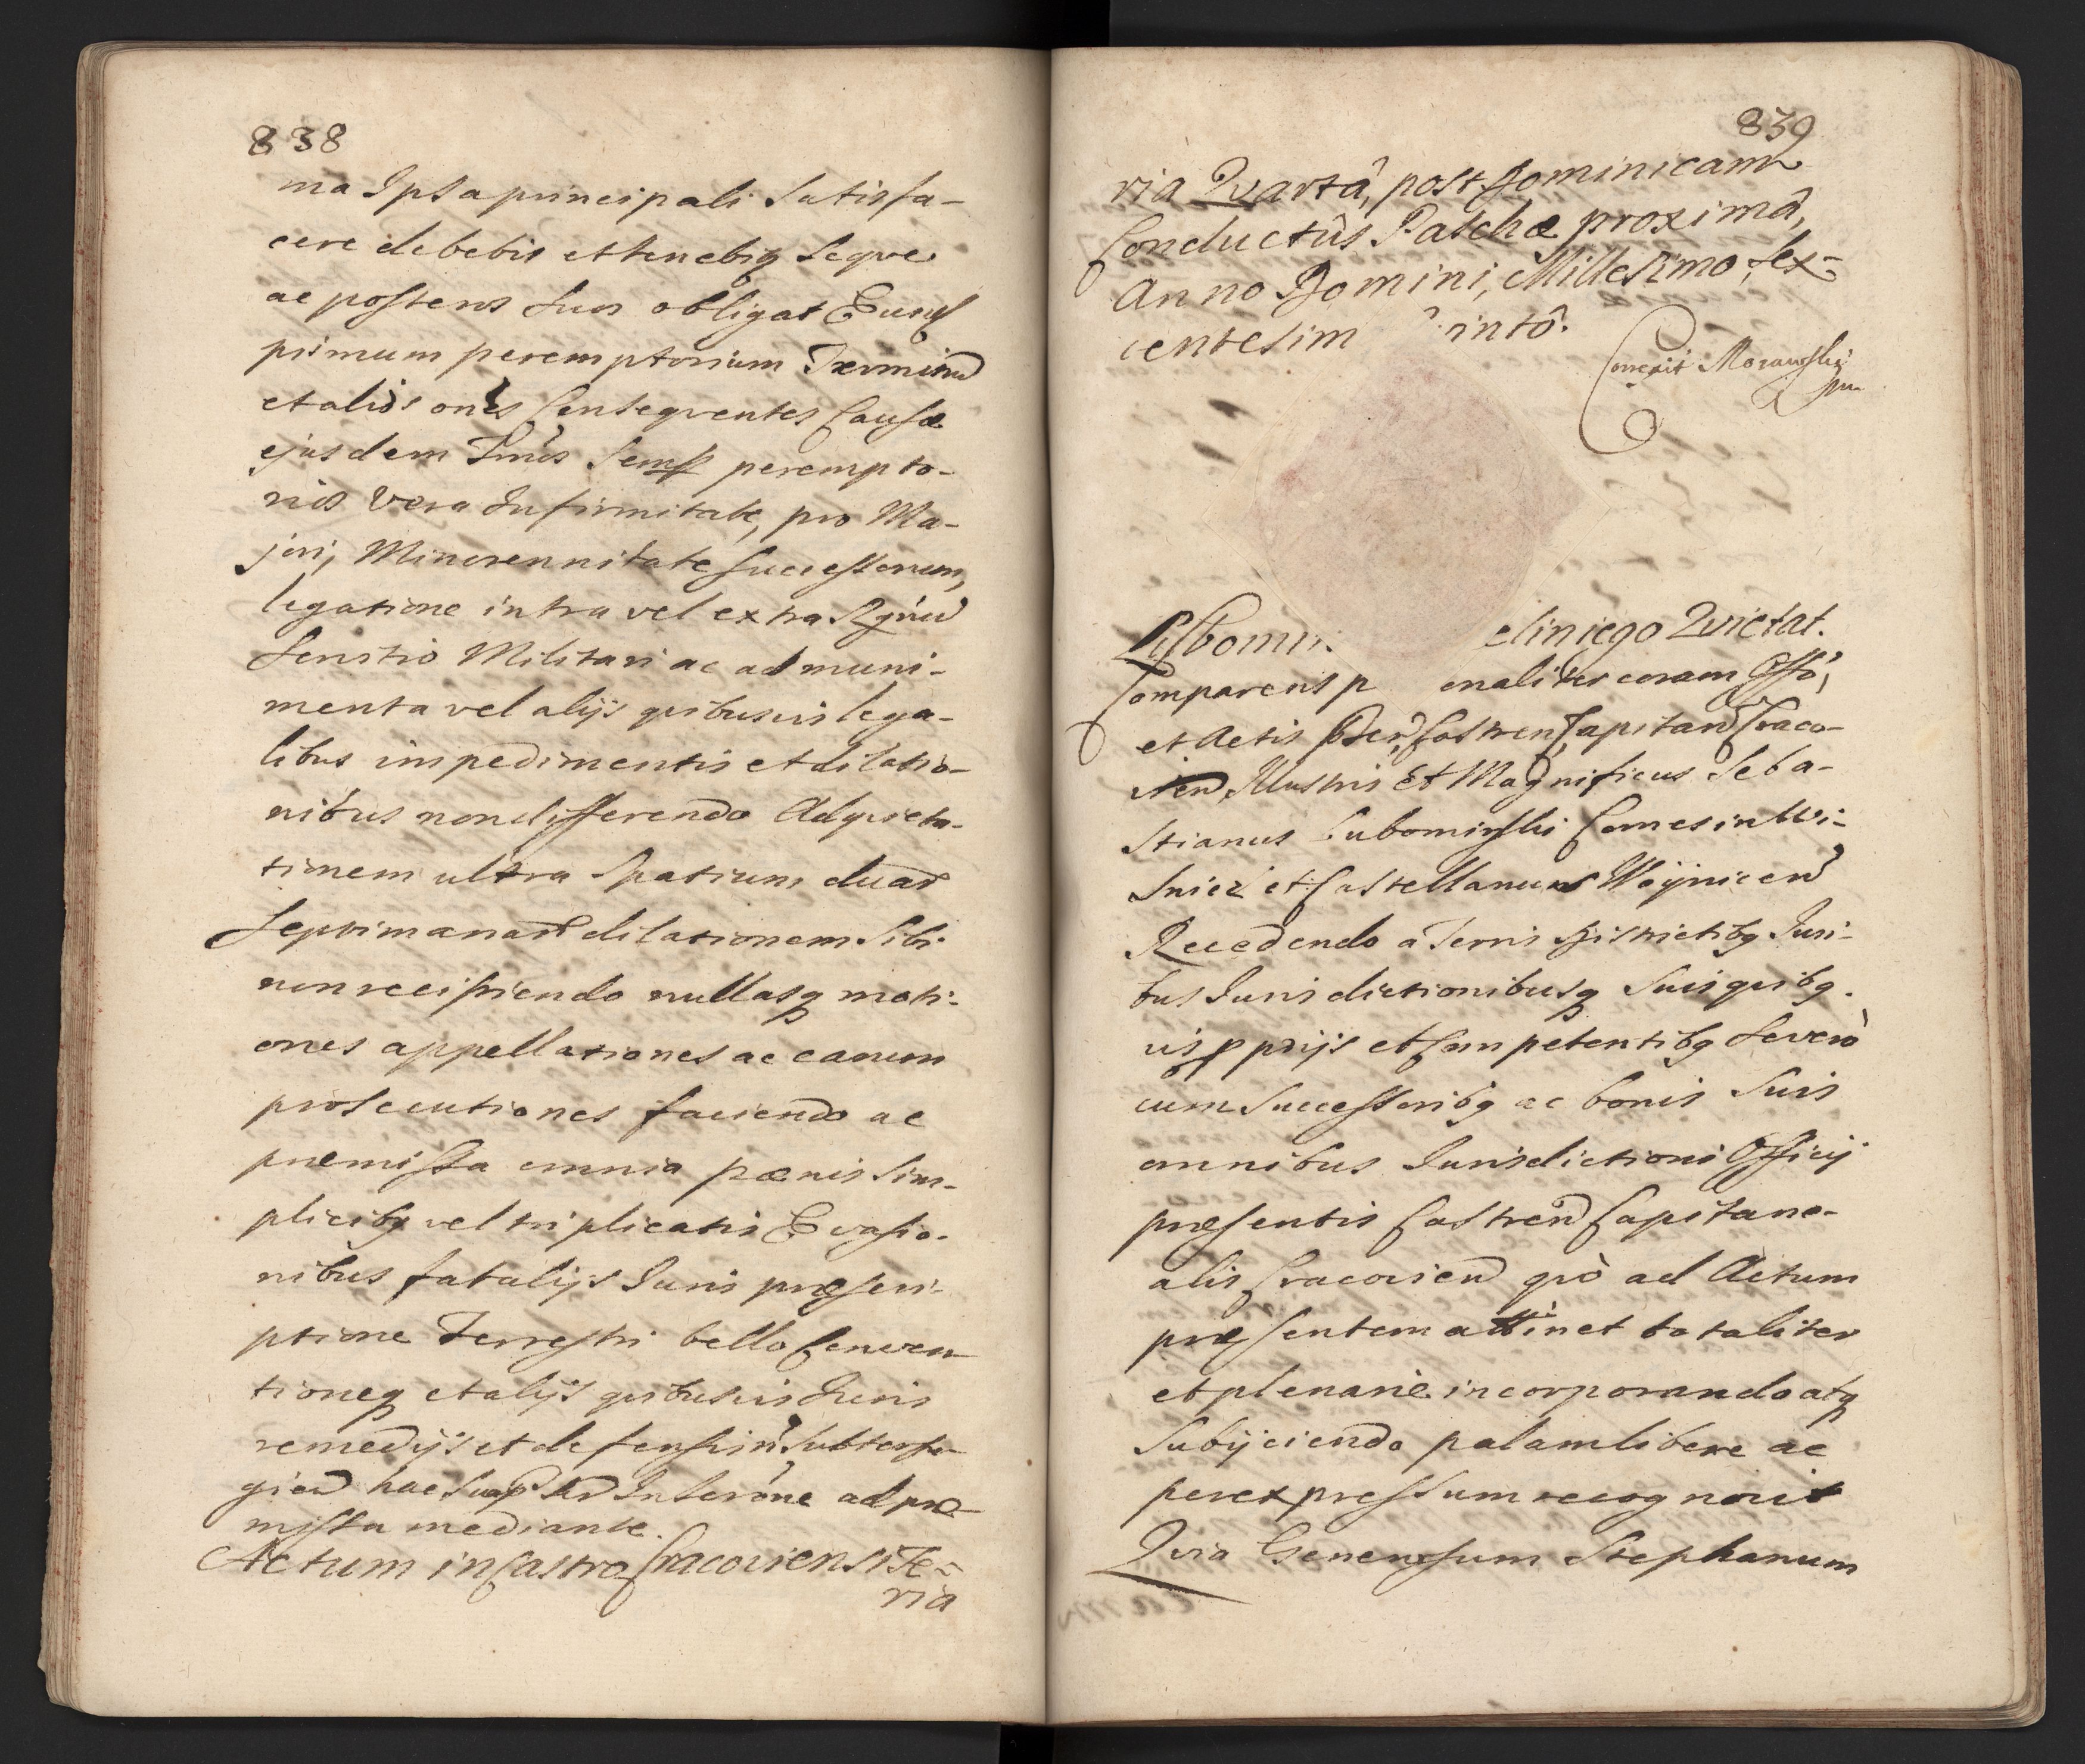 838
ma Ipsa principali Satisfa-
cere debebit et tenebiq Seque
ac posteros Suos obligat Eunq
primum peremptorium Terminū
et alios oncs Consequentes Causæ
ejusdem Tmōs Semp perempto-
rios Vera Infirmitate, pro Ma-
jori, Minorennitate Successorum,
legatione intra vel extra Rgnū
Servitio Militari ac ad muni-
menta vel alijs quibusvis lega-
libus impedimentis et dilatio-
nibus non differendo Ad quieta-
tionem ultra Spatium duar
Septimanar dilationem Sibi
non recipiendo nullasq moti-
ones appellationes ac earum
prosecutiones faciendo ac
præmissa omnia pænis Sim-
plicibq vel triplicatis Evasio-
nibus fatalijs Juris præscri-
ptione Terrestri bello Conven-
tioneq et alijs quibusvis Juris
remedijs et defension Subterfu-
giorū hac Insčrōne ad præ-
missa mediante.
Actum in Castro Cracoviensi Fe-
ria
839
ria Quartâ, post Dominicam
Conductûs Paschæ proximâ,
Anno Domini, Millesimo, Sex-
centesim intô.
Correxit Morawski
mp
Lubomir eliniego Quietat.
Comparens p onaliter coram Offō,
et Actis Castren Capitan Craco-
vien, Illustris et Magnificus Seba-
stianus Lubomirski Comes in Wi-
snicz et Castellanus Woynicen
Recedendo a Terris Districtibq Juri-
bus Jurisdictionibusq Suis quibq-
vis pprijs et Competentibq Severò
cum Successoribq ac bonis Suis
omnibus Jurisdictioni Officij
præsentis Castren Capitane-
alis Cracovien quò ad Actum
præsentem attinet totaliter
et plenarie incorporando atq
Subijciendo palam libere ac
per expressum recognovit
Quia Generosum Stephanum